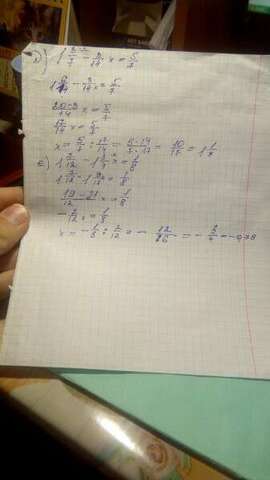 д) 1 3/7 - 3/14 x = 5/7
1 6/14 - 3/14 x = 5/7
20-3/14 x = 5/7
17/14 x = 5/7
x = 5/7 : 17/14 = 5·14/7·17 = 10/17 = 1 1/7
е) 1 7/12 - 1 3/4 x = 1/8
1 7/12 - 1 9/12 = 1/8
19-21/12 x = 1/8
- 2/12 x = 1/8
x = - 1/8 : 2/12 = - 12/16 = - 3/4 =